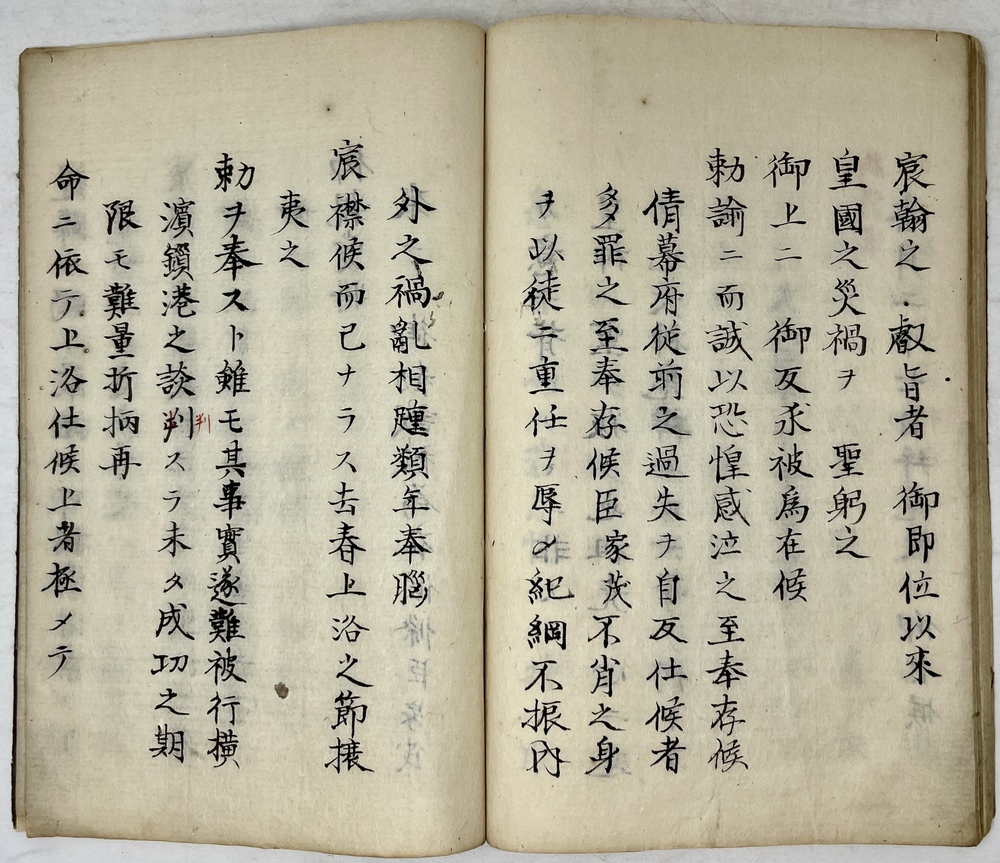 宸翰之 叡旨者 御即位以來
皇國之災禍ヲ 聖躬之
御上ニ 御反求被爲在候
勅諭ニ而誠以恐惶感泣之至奉存候
倩幕府従前之過失ヲ自反仕候者
多罪之至奉存候臣家茂不肖之身
ヲ以徒ニ重任ヲ辱メ紀綱不振内
外之禍亂相踵類年奉腦
宸襟候而已ナラス去春上洛之節攘
夷之
勅ヲ奉スト雖モ其事實遂難被行横
濱鎖港之談判スラ未タ成功之期
判
限モ難量折柄再
命ニ依テ上洛仕候上者極メテ